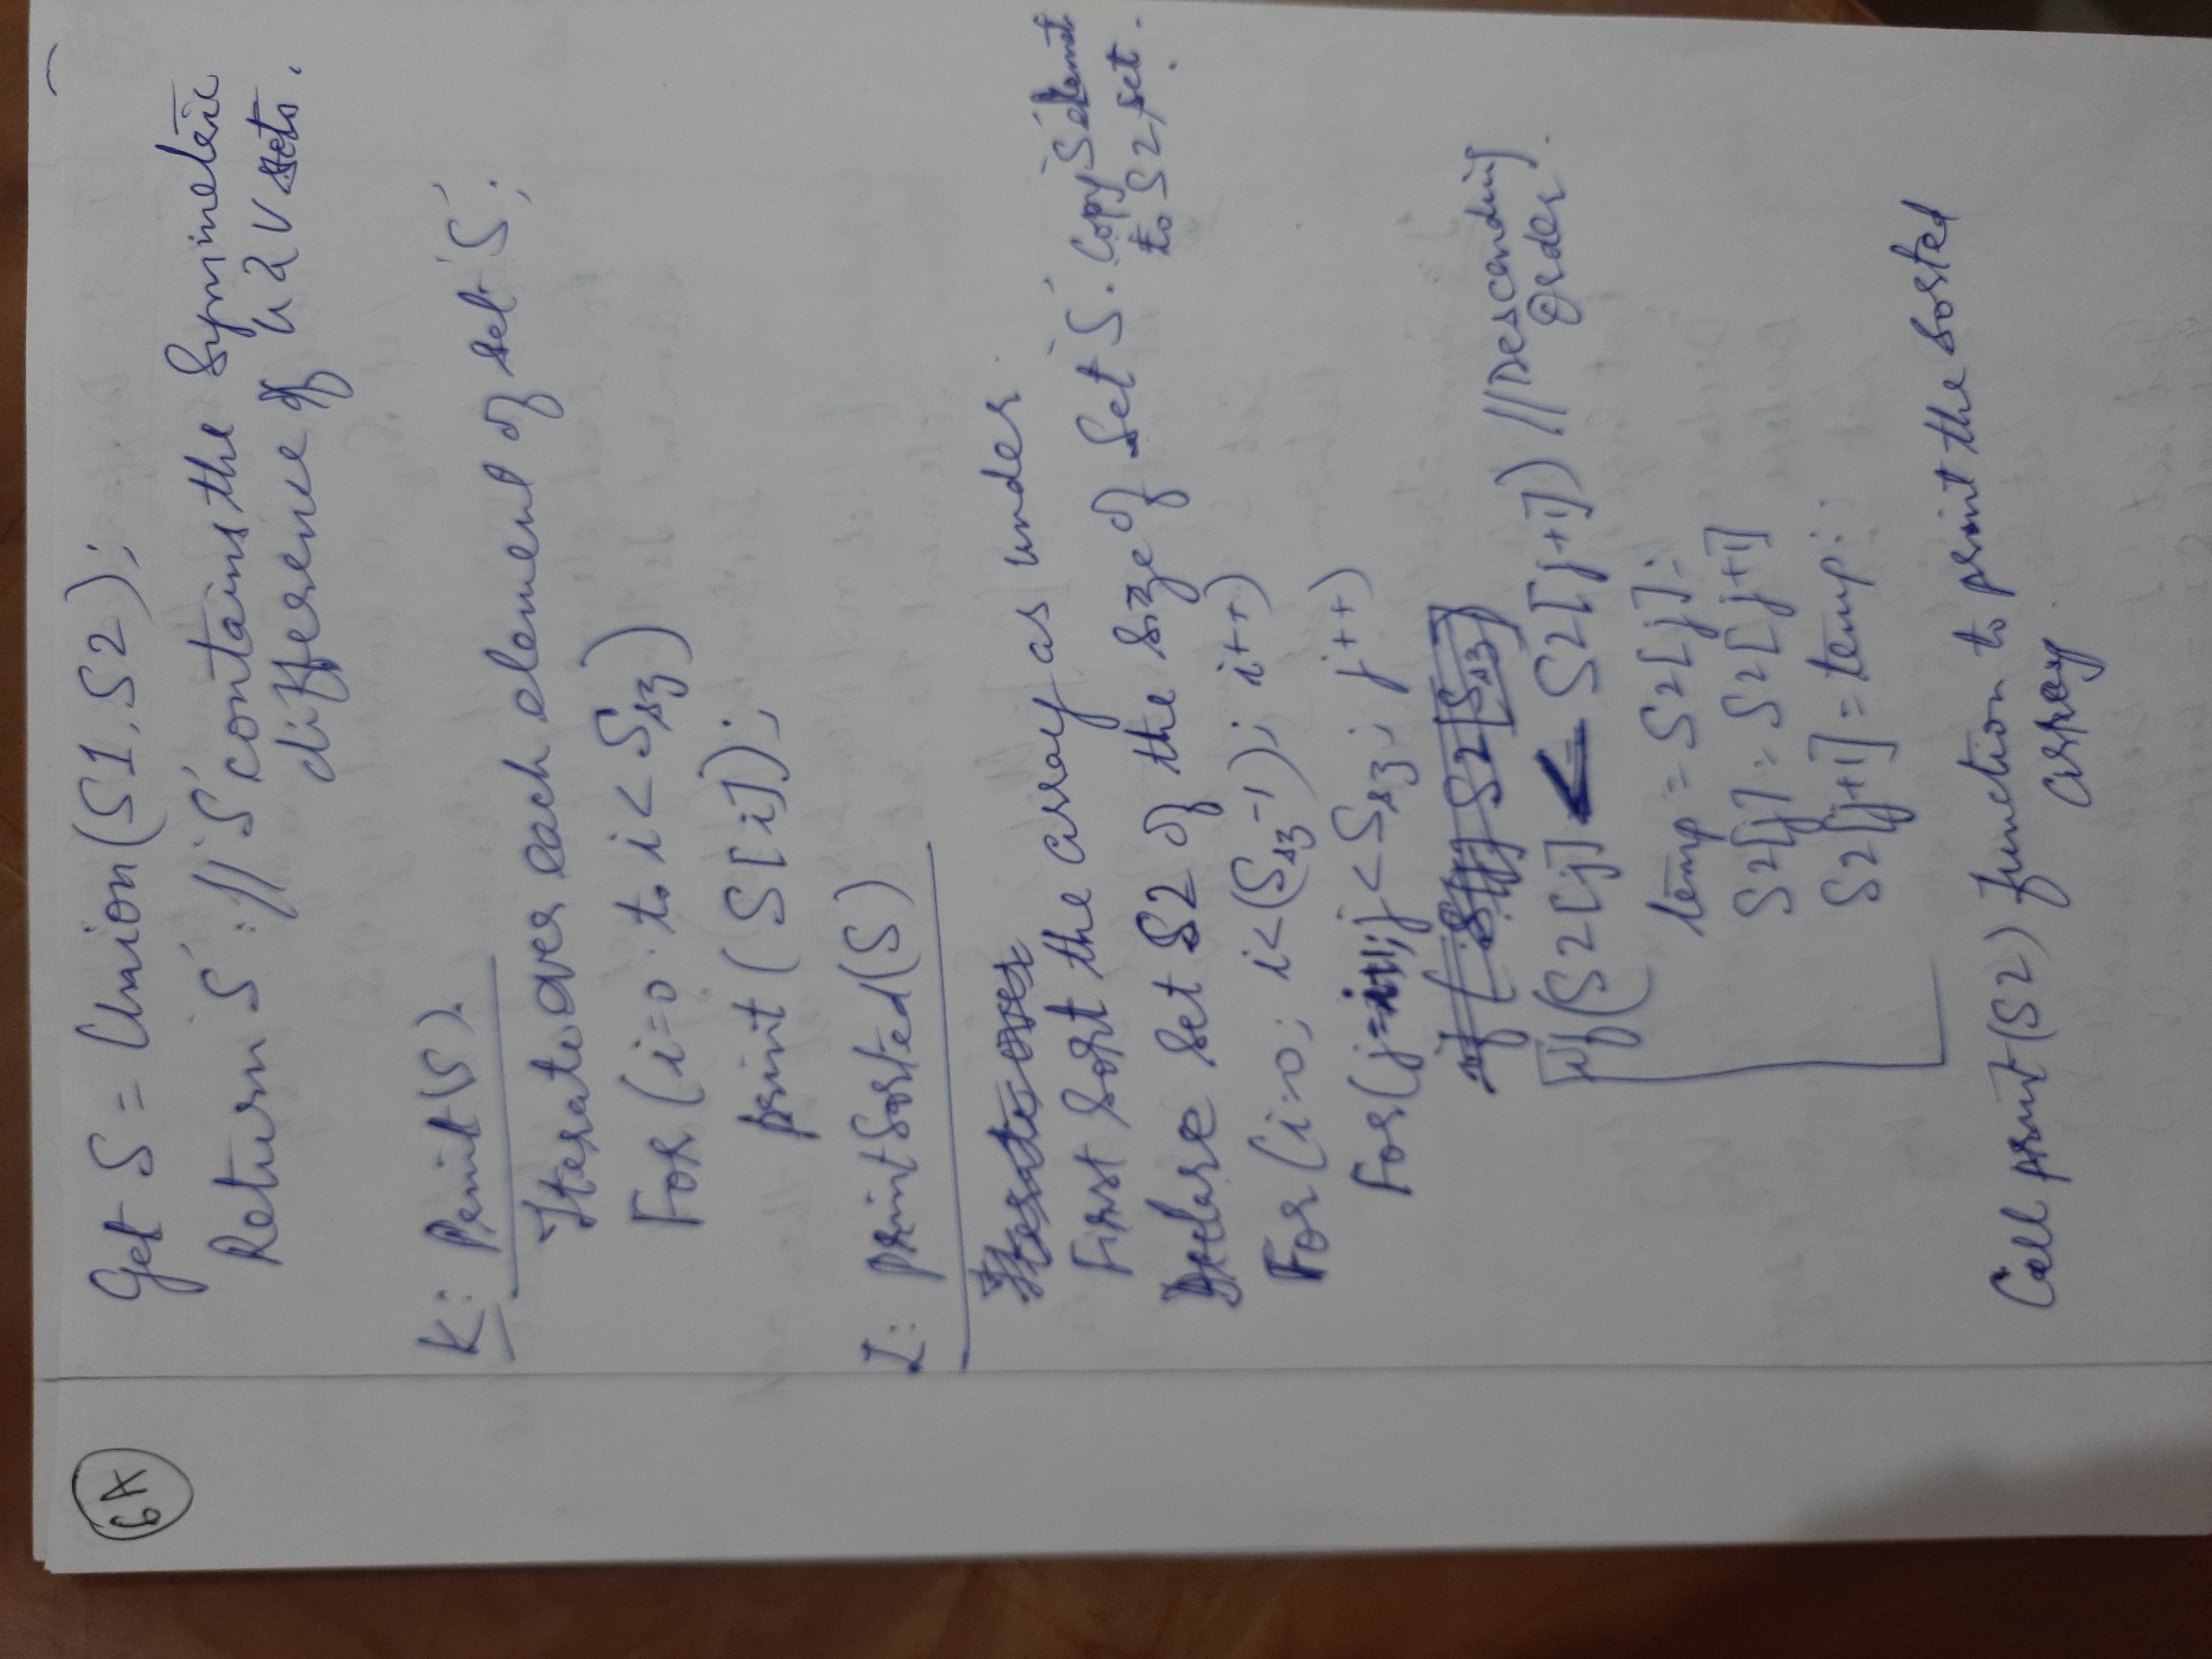 6A
Get S = Union(S1, S2);
Return 'S' : // 'S' contains the Symmeteric
difference of U & V sets.
K: Print(S).
Iterate over each element of set 'S';
For (i=0 to i < Ssz)
print (S[i]);
L: printSorted(S)
Iterate over
First Sort the array as under
Declare Set S2 of the Size of Set 'S'. Copy 'S' element
to S2 set.
For (i=0; i<(Ssz-1); i++)
For (j=i+1; j<Ssz; j++)
if ( S[j] S2[Ssz]
if (S2[j] < S2[j+1]) // Descending
Order.
temp = S2[j];
S2[j] = S2[j+1]
S2[j+1] = temp;
Call print(S2) function to print the sorted
array.